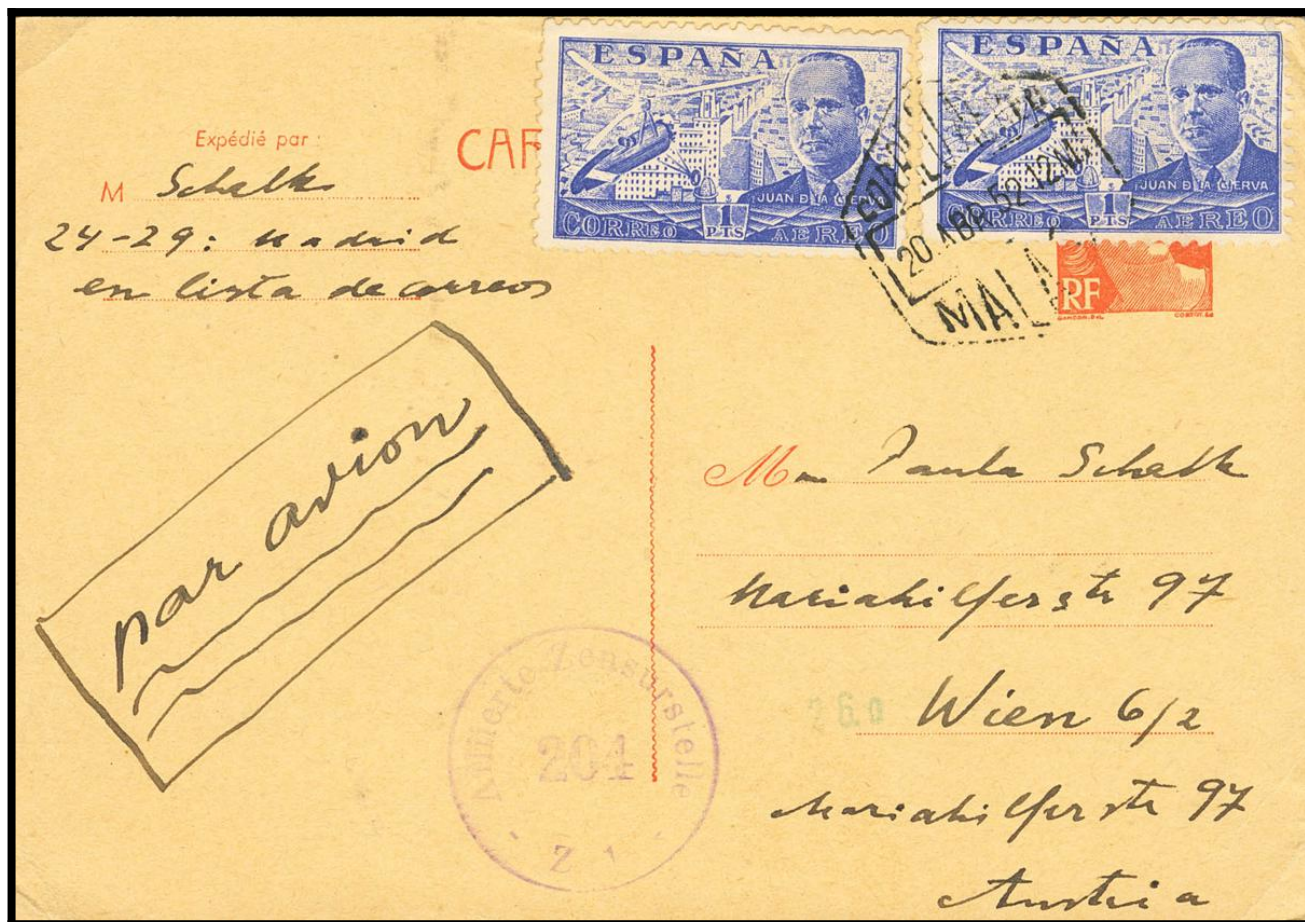 Expédié par :
M Schalk
24-29: Madrid
en lista de correos
CAR
ESPAÑA
JUAN D LA CIERVA
1
PTS
CORREO AEREO
ESPAÑA
JUAN D LA CIERVA
1
PTS
CORREO AEREO
20.ABR.52.12M
MALA
RF
GANDON.DEL.
par avion
Mme Paula Schalk
Mariahilferstr 97
Wien 6/2
Mariahilferstr 97
Austria
Alliierte Zensurstelle
204
- Z 1 -